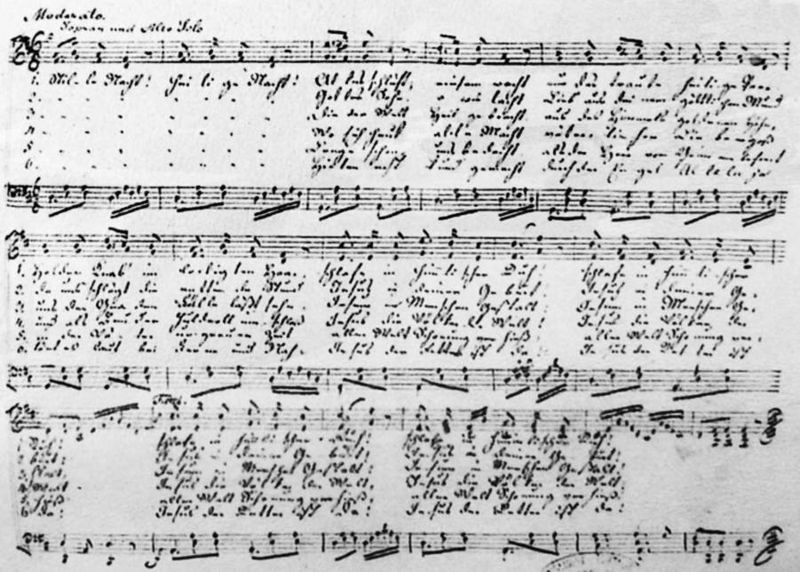 Moderato.
Sopran und Alto Solo
1. Stille Nacht! Heilige Nacht! Alles schläft, einsam wacht nur das traute heilige Paar
2. Gottes Sohn, o wie lacht Lieb aus deinem göttlichen Mund
3. Die der Welt Heil gebracht, aus des Himmels goldenen Höhn
4. Wo sich heut alle Macht väterlicher Liebe ergoß
5. Lange schon uns bedacht, als der Herr vom Grimme befreit
6. Hirten erst kund gemacht durch der Engel Alleluja
1. Holder Knab im lockigten Haar, schlafe in himmlischer Ruh! schlafe in himmlischer
2. da uns schlägt die rettende Stund Jesus in deiner Geburt! Jesus in deiner Ge-
3. uns der Gnaden Fülle läßt sehn Jesum in Menschengestalt! Jesum in Menschen Ge-
4. und als Bruder huldvoll umschloß Jesus die Völker der Welt! Jesus die Völker der
5. in der Väter urgrauer Zeit aller Welt Schonung verhieß! aller Welt Schonung ver-
6. tönt es laut bei Ferne und Nah. Jesus der Retter ist da! Jesus der Retter ist
1. Ruh! schlafe in himmlischer Ruh! schlafe in himmlischer Ruh!
2. burt! Jesus in deiner Geburt! Jesus in deiner Geburt!
3. stalt! Jesum in Menschen Gestalt! Jesum in Menschen Gestalt!
4. Welt Jesus die Völker der Welt! Jesus die Völker der Welt!
5. hieß aller Welt Schonung verhieß! aller Welt Schonung verhieß!
6. da! Jesus der Retter ist da! Jesus der Retter ist da!